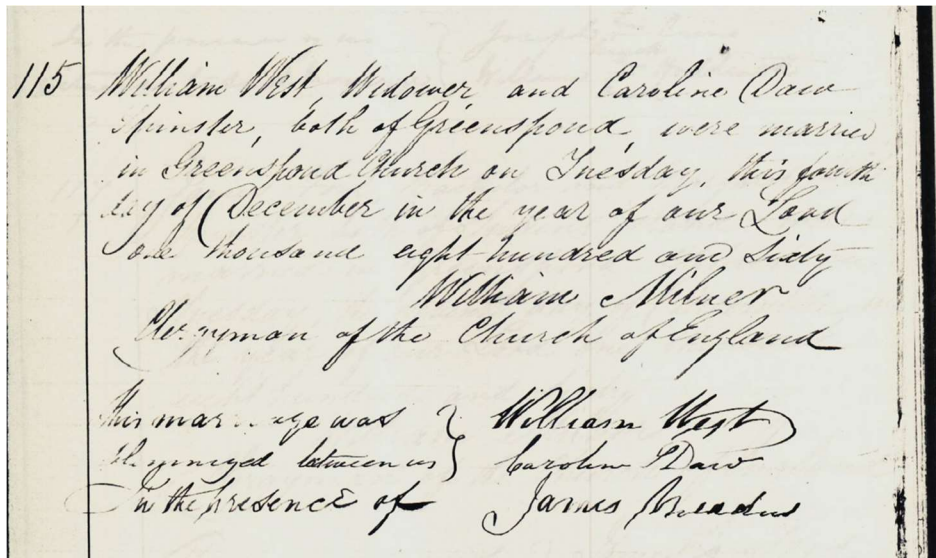 115 William West, Widower, and Caroline Daw
Spinster, both of Greenspond, were married
in Greenspond Church on Tuesday, this fourth
day of December in the year of our Lord
one thousand eight hundred and sixty
William Milner
Clergyman of the Church of England
This marriage was } William West
solemnized between us } Caroline Daw
In the presence of James